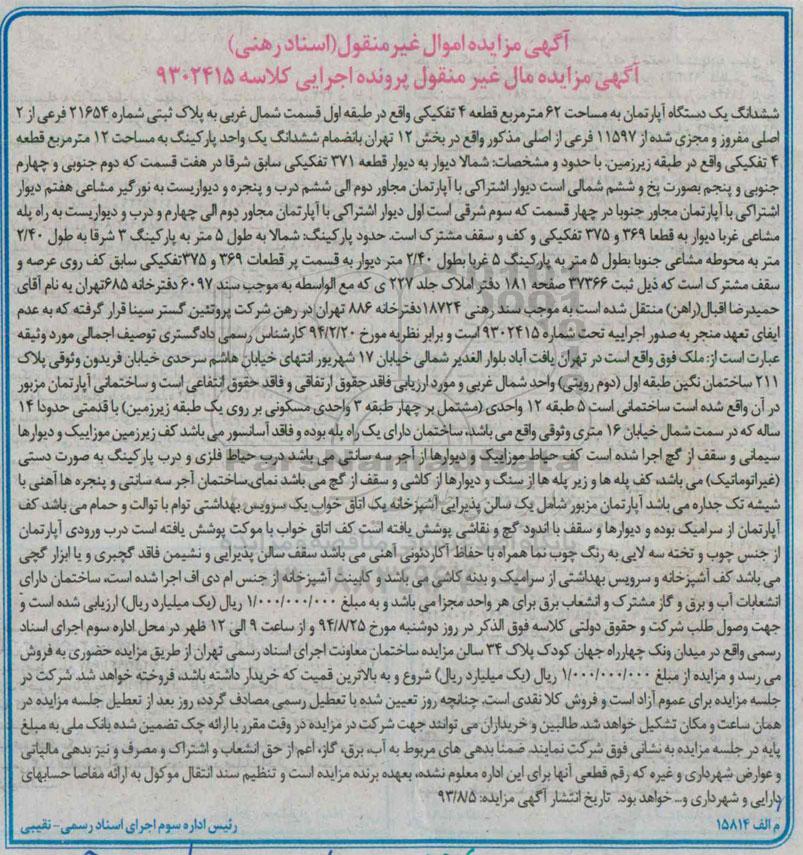 آگهی مزایده اموال غیرمنقول(اسناد رهنی)
آگهی مزایده مال غیر منقول پرونده اجرایی کلاسه ۹۳۰۲۴۱۵
ششدانگ یک دستگاه آپارتمان به مساحت ۶۲ مترمربع قطعه ۴ تفکیکی واقع در طبقه اول قسمت شمال غربی به پلاک ثبتی شماره ۲۱۶۵۴ فرعی از ۲
اصلی مفروز و مجزی شده از ۱۱۵۹۷ فرعی از اصلی مذکور واقع در بخش ۱۲ تهران بانضمام ششدانگ یک واحد پارکینگ به مساحت ۱۲ مترمربع قطعه
۴ تفکیکی واقع در طبقه زیرزمین. با حدود و مشخصات: شمالا دیوار به دیوار قطعه ۳۷۱ تفکیکی سابق شرقا در هفت قسمت که دوم جنوبی و چهارم
جنوبی و پنجم بصورت پخ و ششم شمالی است دیوار اشتراکی با آپارتمان مجاور دوم الی ششم درب و پنجره و دیواریست به نورگیر مشاعی هفتم دیوار
اشتراکی با آپارتمان مجاور جنوبا در چهار قسمت که سوم شرقی است اول دیوار اشتراکی با آپارتمان مجاور دوم الی چهارم و درب و دیواریست به راه پله
مشاعی غربا دیوار به قطعا ۳۶۹ و ۳۷۵ تفکیکی و کف و سقف مشترک است. حدود پارکینگ: شمالا به طول ۵ متر به پارکینگ ۳ شرقا به طول ۲/۴۰
متر به محوطه مشاعی جنوبا بطول ۵ متر به پارکینگ ۵ غربا بطول ۲/۴۰ متر دیوار به قسمت پر قطعات ۳۶۹ و ۳۷۵تفکیکی سابق کف روی عرصه و
سقف مشترک است که ذیل ثبت ۳۷۳۶۶ صفحه ۱۸۱ دفتر املاک جلد ۲۲۷ ی که مع الواسطه به موجب سند ۶۰۹۷ دفترخانه ۶۸۵تهران به نام آقای
حمیدرضا اقبال(راهن) منتقل شده است به موجب سند رهنی ۱۸۷۲۴دفترخانه ۸۸۶ تهران در رهن شرکت پروتئین گستر سینا قرار گرفته که به عدم
ایفای تعهد منجر به صدور اجراییه تحت شماره ۹۳۰۲۴۱۵ است و برابر نظریه مورخ ۹۴/۲/۲۰ کارشناس رسمی دادگستری توصیف اجمالی مورد وثیقه
عبارت است از: ملک فوق واقع است در تهران یافت آباد بلوار الغدیر شمالی خیابان ۱۷ شهریور انتهای خیابان هاشم سرحدی خیابان فریدون وثوقی پلاک
۲۱۱ ساختمان نگین طبقه اول (دوم رویتی) واحد شمال غربی و مورد ارزیابی فاقد حقوق ارتفاقی و فاقد حقوق انتفاعی است و ساختمانی آپارتمان مزبور
در آن واقع شده است ساختمانی است ۵ طبقه ۱۲ واحدی (مشتمل بر چهار طبقه ۳ واحدی مسکونی بر روی یک طبقه زیرزمین) با قدمتی حدودا ۱۴
ساله که در سمت شمال خیابان ۱۶ متری وثوقی واقع می باشد، ساختمان دارای یک راه پله بوده و فاقد آسانسور می باشد کف زیرزمین موزاییک و دیوارها
سیمانی و سقف از گچ اجرا شده است کف حیاط موزاییک و دیوارها از آجر سه سانتی می باشد درب حیاط فلزی و درب پارکینگ به صورت دستی
(غیراتوماتیک) می باشد، کف پله ها و زیر پله ها از سنگ و دیوارها از کاشی و سقف از گچ می باشد نمای ساختمان آجر سه سانتی و پنجره ها آهنی با
شیشه تک جداره می باشد آپارتمان مزبور شامل یک سالن پذیرایی آشپزخانه یک اتاق خواب یک سرویس بهداشتی توام با توالت و حمام می باشد کف
آپارتمان از سرامیک بوده و دیوارها و سقف با اندود گچ و نقاشی پوشش یافته است کف اتاق خواب با موکت پوشش یافته است درب ورودی آپارتمان
از جنس چوب و تخته سه لایی به رنگ چوب نما همراه با حفاظ آکاردئونی آهنی می باشد سقف سالن پذیرایی و نشیمن فاقد گچبری و یا ابزار گچی
می باشد کف آشپزخانه و سرویس بهداشتی از سرامیک و بدنه کاشی می باشد و کابینت آشپزخانه از جنس ام دی اف اجرا شده است، ساختمان دارای
انشعابات آب و برق و گاز مشترک و انشعاب برق برای هر واحد مجزا می باشد و به مبلغ ۱/۰۰۰/۰۰۰/۰۰۰ ریال (یک میلیارد ریال) ارزیابی شده است و
جهت وصول طلب شرکت و حقوق دولتی کلاسه فوق الذکر در روز دوشنبه مورخ ۹۴/۸/۲۵ و از ساعت ۹ الی ۱۲ ظهر در محل اداره سوم اجرای اسناد
رسمی واقع در میدان ونک چهارراه جهان کودک پلاک ۳۴ سالن مزایده ساختمان معاونت اجرای اسناد رسمی تهران از طریق مزایده حضوری به فروش
می رسد و مزایده از مبلغ ۱/۰۰۰/۰۰۰/۰۰۰ ریال (یک میلیارد ریال) شروع و به بالاترین قمیت که خریدار داشته باشد، فروخته خواهد شد. شرکت در
جلسه مزایده برای عموم آزاد است و فروش کلا نقدی است. چنانچه روز تعیین شده با تعطیل رسمی مصادف گردد، روز بعد از تعطیل جلسه مزایده در
همان ساعت و مکان تشکیل خواهد شد. طالبین و خریداران می توانند جهت شرکت در مزایده در وقت مقرر با ارائه چک تضمین شده بانک ملی به مبلغ
پایه در جلسه مزایده به نشانی فوق شرکت نمایند. ضمنا بدهی های مربوط به آب، برق، گاز، اعم از حق انشعاب و اشتراک و مصرف و نیز بدهی مالیاتی
و عوارض شهرداری و غیره که رقم قطعی آنها برای این اداره معلوم نشده، بعهده برنده مزایده است و تنظیم سند انتقال موکول به ارائه مفاصا حسابهای
دارایی و شهرداری و... خواهد بود. تاریخ انتشار آگهی مزایده: ۹۳/۸/۵
م الف ۱۵۸۱۴
رئیس اداره سوم اجرای اسناد رسمی- نقیبی